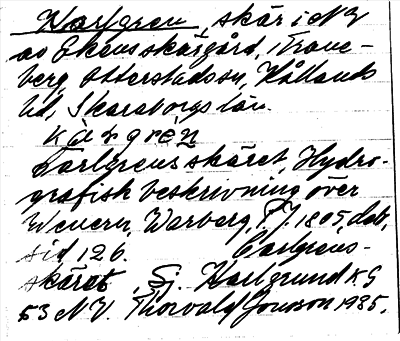 Karlgren, skär i NV
av Ekens skärgård, Trane-
berg, Otterstads sn, Kållands
hd, Skaraborgs län.
kàrgrén
Carlgrens skäret, Hydro-
grafisk beskrivning över
Wenern, Warberg,
sid 126. Carlgrens-
skäret, Sj. Karlgrund KG
53 NV. Thorvald Jonsson 1985.